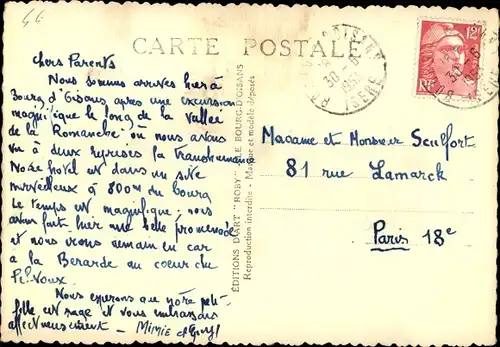 CARTE POSTALE
Chers Parents
Nous sommes arrivés hier à
Bourg d'Oisans après une excursion
magnifique le long de la Vallée
de la Romanche où nous avons
vu à deux reprises la Transhumance
Notre hôtel est dans un site
merveilleux à 800m du bourg
Le temps est magnifique ; nous
avons fait hier une belle promenade
et nous irons demain en car
à la Bérarde au coeur du
Pelvoux.
Nous espérons que votre petite
fille est sage et vous embrassons
affectueusement - Mimie et
ÉDITIONS D'ART "ROBY" - LE BOURG-D'OISANS
Reproduction interdite - Marque et modèle déposés
12F
RF
30 -6
1951
ISERE
Madame et Monsieur Seulfort
81 rue Lamarck
Paris 18e